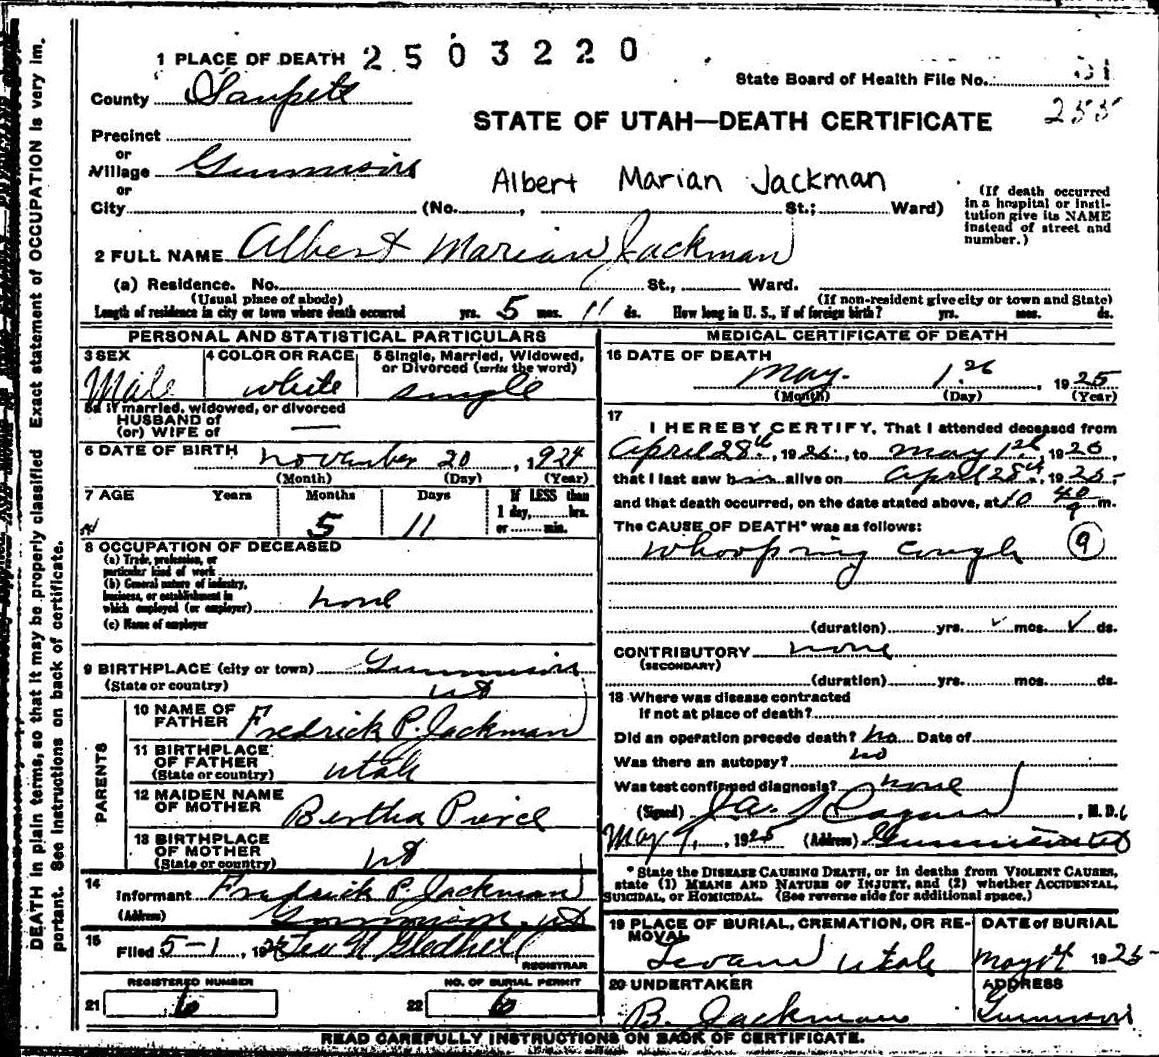 1 PLACE OF DEATH 2 5 0 3 2 2 0
State Board of Health File No. 31
County Sanpete
255
STATE OF UTAH—DEATH CERTIFICATE
Precinct
or
Village Gunnison
or
Albert Marian Jackman
City (No. , St.; Ward)
(If death occurred in a hospital or insti-
tution give its NAME
instead of street and
number.)
2 FULL NAME Albert Marian Jackman
(a) Residence. No. St., Ward.
(Usual place of abode) (If non-resident give city or town and State)
Length of residence in city or town where death occurred yrs. 5 mos. 11 ds. How long in U. S., if of foreign birth? yrs. mos. ds.
PERSONAL AND STATISTICAL PARTICULARS
3 SEX Male
4 COLOR OR RACE white
5 Single, Married, Widowed,
or Divorced (write the word)
single
5a If married, widowed, or divorced
HUSBAND of
(or) WIFE of
6 DATE OF BIRTH November 20, 1924
(Month) (Day) (Year)
7 AGE Years Months Days If LESS than
1 day, hrs.
or min.
5 11
8 OCCUPATION OF DECEASED
(a) Trade, profession, or
particular kind of work
(b) General nature of industry,
business, or establishment in
which employed (or employer) none
(c) Name of employer
9 BIRTHPLACE (city or town) Gunnison
(State or country) ut
PARENTS
10 NAME OF
FATHER Fredrick P. Jackman
11 BIRTHPLACE
OF FATHER
(State or country) utah
12 MAIDEN NAME
OF MOTHER Bertha Pierce
13 BIRTHPLACE
OF MOTHER
(State or country) ut
14
Informant Fredrick P. Jackman
(Address) Gunnison, ut
15
Filed 5-1, 19
REGISTRAR
REGISTERED NUMBER
21 6
NO. OF BURIAL PERMIT
22 6
MEDICAL CERTIFICATE OF DEATH
16 DATE OF DEATH
May. 1st, 1925
(Month) (Day) (Year)
17
I HEREBY CERTIFY, That I attended deceased from
April 28th, 1925, to May 1st, 1925,
that I last saw him alive on April 28th, 1925
and that death occurred, on the date stated above, at 10 40 m.
The CAUSE OF DEATH* was as follows:
Whooping cough 9
(duration) yrs. mos. ds.
CONTRIBUTORY none
(SECONDARY)
(duration) yrs. mos. ds.
18 Where was disease contracted
if not at place of death?
Did an operation precede death? no Date of
Was there an autopsy? no
Was test confirmed diagnosis? none
(Signed) , M. D.
May 1, 1925 (Address) Gunnison
* State the DISEASE CAUSING DEATH, or in deaths from VIOLENT CAUSES,
state (1) MEANS AND NATURE OF INJURY, and (2) whether ACCIDENTAL,
SUICIDAL, OR HOMICIDAL. (See reverse side for additional space.)
19 PLACE OF BURIAL, CREMATION, OR RE-
MOVAL
Levan utah
DATE OF BURIAL
May 1925
20 UNDERTAKER
B. Jackman
ADDRESS
Gunnison
READ CAREFULLY INSTRUCTIONS ON BACK OF CERTIFICATE.
DEATH in plain terms, so that it may be properly classified Exact statement of OCCUPATION is very im-
portant. See Instructions on back of certificate.